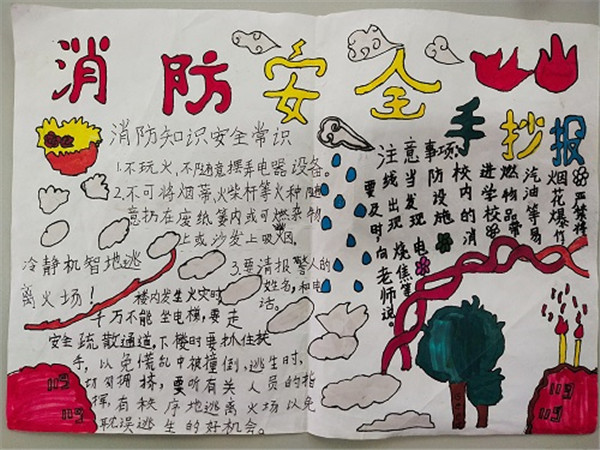 消防安全手抄报
消防知识安全常识
1.不玩火,不随意摆弄电器设备。
2.不可将烟蒂,火柴杆等火种随
意扔在废纸篓内或可燃杂物
上或沙发上吸烟。
3.要清报警人的
姓名,和电
话。
冷静机智地逃
离火场!
楼内发生火灾时
千万不能坐电梯,要走
安全疏散通道,下楼时要抓住扶
手,以免慌乱中被撞倒,逃生时,
切勿拥挤,要听有关人员的指
挥,有秩序地逃离火场以免
耽误逃生的好机会。
注意事项:
严禁携
烟花爆
汽油等易
燃物品带
进学校
校内的消
防设施
当发现电
线出现烧焦
要及时向老师说。
119
119
119
119